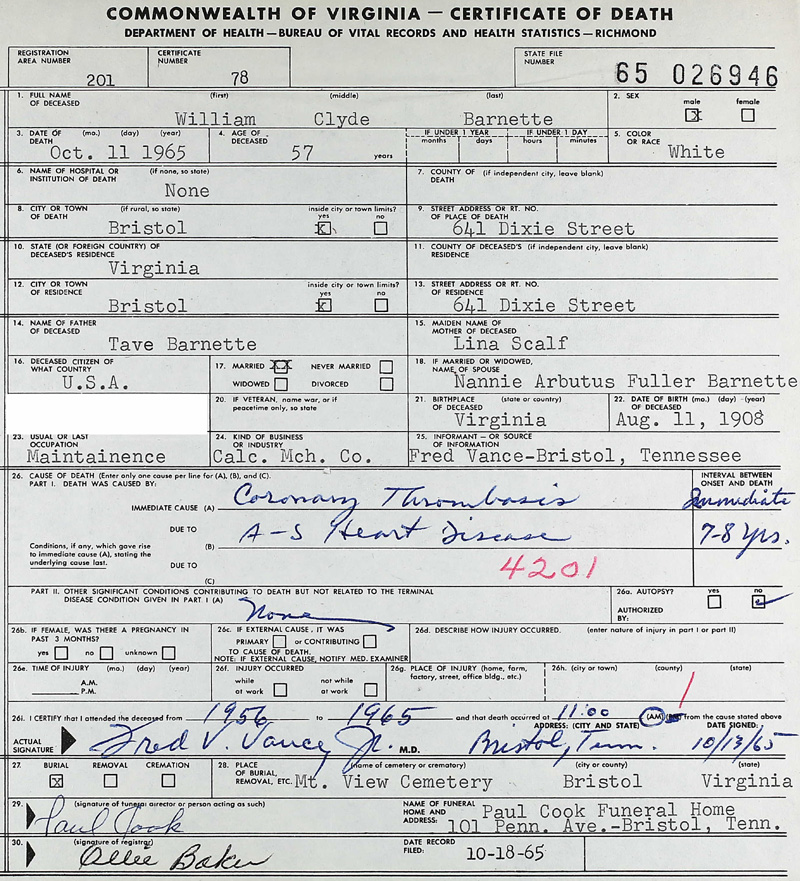 COMMONWEALTH OF VIRGINIA — CERTIFICATE OF DEATH
DEPARTMENT OF HEALTH—BUREAU OF VITAL RECORDS AND HEALTH STATISTICS—RICHMOND
REGISTRATION AREA NUMBER 201 CERTIFICATE NUMBER 78 STATE FILE NUMBER 65 026946
1. FULL NAME OF DECEASED (first) (middle) (last) 2. SEX male female
William Clyde Barnette X
3. DATE OF DEATH (mo.) (day) (year) 4. AGE OF DECEASED IF UNDER 1 YEAR months days IF UNDER 1 DAY hours minutes 5. COLOR OR RACE
Oct. 11 1965 57 years White
6. NAME OF HOSPITAL OR INSTITUTION OF DEATH (if none, so state) 7. COUNTY OF DEATH (if independent city, leave blank)
None
8. CITY OR TOWN OF DEATH (if rural, so state) inside city or town limits? yes no 9. STREET ADDRESS OR RT. NO. OF PLACE OF DEATH
Bristol X 641 Dixie Street
10. STATE (OR FOREIGN COUNTRY) OF DECEASED'S RESIDENCE 11. COUNTY OF DECEASED'S RESIDENCE (if independent city, leave blank)
Virginia
12. CITY OR TOWN OF RESIDENCE inside city or town limits? yes no 13. STREET ADDRESS OR RT. NO. OF RESIDENCE
Bristol X 641 Dixie Street
14. NAME OF FATHER OF DECEASED 15. MAIDEN NAME OF MOTHER OF DECEASED
Tave Barnette Lina Scalf
16. DECEASED CITIZEN OF WHAT COUNTRY 17. MARRIED XX NEVER MARRIED WIDOWED DIVORCED 18. IF MARRIED OR WIDOWED, NAME OF SPOUSE
U.S.A. Nannie Arbutus Fuller Barnette
20. IF VETERAN, name war, or if peacetime only, so state 21. BIRTHPLACE OF DECEASED (state or country) 22. DATE OF BIRTH (mo.) (day) (year) OF DECEASED
Virginia Aug. 11, 1908
23. USUAL OR LAST OCCUPATION 24. KIND OF BUSINESS OR INDUSTRY 25. INFORMANT — OR SOURCE OF INFORMATION
Maintainence Calc. Mch. Co. Fred Vance-Bristol, Tennessee
26. CAUSE OF DEATH (Enter only one cause per line for (A), (B), and (C). INTERVAL BETWEEN ONSET AND DEATH
PART I. DEATH WAS CAUSED BY:
IMMEDIATE CAUSE (A) Coronary Thrombosis Immediate
DUE TO
(B) A-S Heart Disease 7-8 Yrs.
Conditions, if any, which gave rise to immediate cause (A), stating the underlying cause last.
DUE TO
(C) 4201
PART II. OTHER SIGNIFICANT CONDITIONS CONTRIBUTING TO DEATH BUT NOT RELATED TO THE TERMINAL DISEASE CONDITION GIVEN IN PART I (A) 26a. AUTOPSY? yes no
None AUTHORIZED BY:
26b. IF FEMALE, WAS THERE A PREGNANCY IN PAST 3 MONTHS? yes no unknown
26c. IF EXTERNAL CAUSE, IT WAS PRIMARY or CONTRIBUTING TO CAUSE OF DEATH. NOTE: IF EXTERNAL CAUSE, NOTIFY MED. EXAMINER
26d. DESCRIBE HOW INJURY OCCURRED. (enter nature of injury in part I or part II)
26e. TIME OF INJURY (mo.) (day) (year) A.M. P.M.
26f. INJURY OCCURRED while at work not while at work
26g. PLACE OF INJURY (home, farm, factory, street, office bldg., etc.)
26h. (city or town) (county) (state)
26i. I CERTIFY that I attended the deceased from 1956 to 1965 and that death occurred at 11:00 (AM) from the cause stated above
ACTUAL SIGNATURE Fred V. Vance, Jr. M.D. ADDRESS: (CITY AND STATE) Bristol, Tenn. DATE SIGNED: 10/13/65
27. BURIAL X REMOVAL CREMATION 28. PLACE OF BURIAL, REMOVAL, ETC. (name of cemetery or crematory) (city or county) (state)
Mt. View Cemetery Bristol Virginia
29. (signature of funeral director or person acting as such) Paul Cook NAME OF FUNERAL HOME AND ADDRESS: Paul Cook Funeral Home
101 Penn. Ave.-Bristol, Tenn.
30. (signature of registrar) Ollie Baker DATE RECORD FILED: 10-18-65